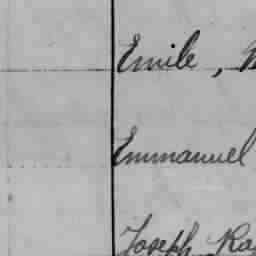 Emile,
Emmanuel
Joseph